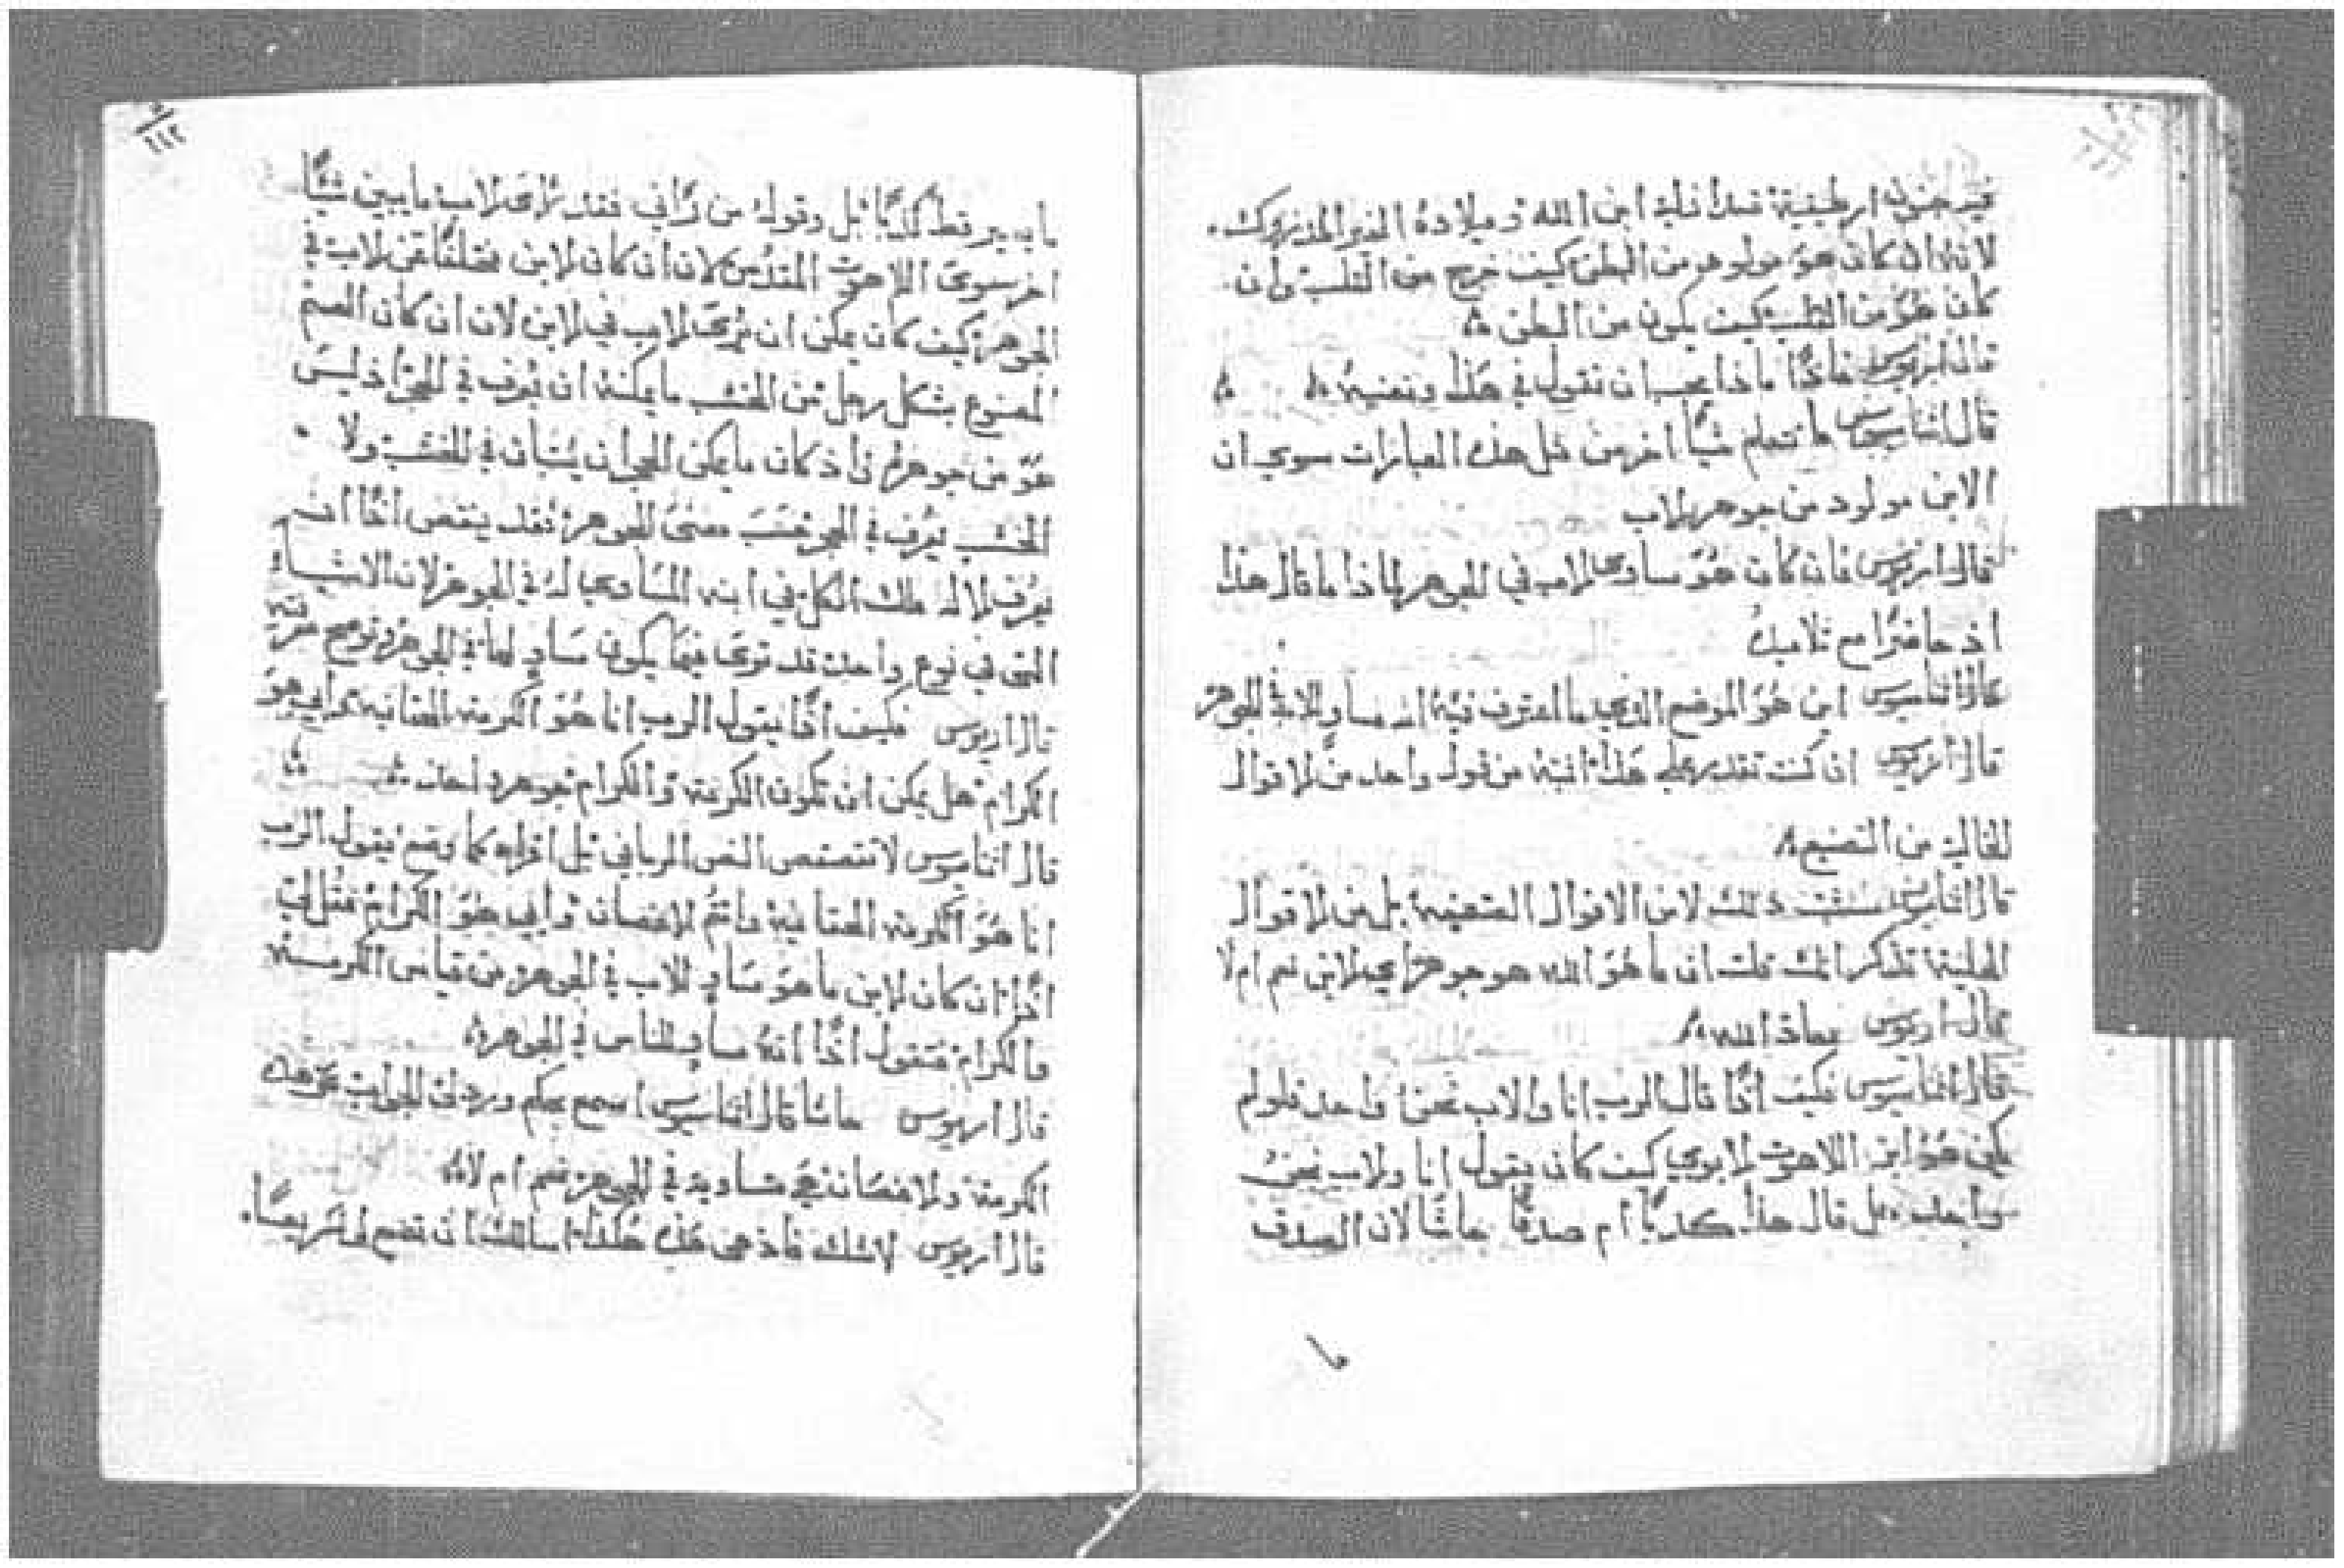 لانه ان كان هو مولود من البطن كيف خرج من القلب وان
كان هو من القلب كيف يكون من البطن
قال اريوس فاذًا ماذا يجب ان نقول في هذا
قال اثناسيوس ما نتعلم شيًا اخر من مثل هذه العبارات سوي ان
الابن مولود من جوهر الاب
قال اريوس فان كان هو مساوي الاب في الجوهر لماذا ما قال هذا
اذ حاضرًا مع تلاميذه
قال اثناسيوس اين هو الموضع الذي ما اعترف فيه انه مساو للاب في الجوهر
قال اريوس ان كنت تقدر علي هذا اثبته من قول واحد من الاقوال
الخاليه من التصنع
قال اثناسيوس ذلك لا من الاقوال بل من الاقوال
الجليه تذكر انك قلت ان ما هو الله هو جوهر اي الابن نعم ام لا
قال اريوس معاذ الله
قال اثناسيوس فكيف اذًا قال الرب انا والاب نحن واحد فلو لم
يكن هو ابن اللاهوت الابوي كيف كان يقول انا والاب نحن
واحد هل قال هذا كدبًا ام صدقًا حاشا لان الصدق
٢٤٢
ما يصير قط كدبًا بل وقوله من راني فقد راى الاب ما يبين شيًا
اخر سوى اللاهوت المقدس لان ان كان الابن مختلفًا عن الاب في
الجوهر كيف كان يمكن ان يُرى الاب في الابن لان ان كان الصنم
المصنوع بشكل رجل من الخشب ما يمكنه ان يُعرف في الحجر اذ ليس
هو من جوهره واذ كان ما يمكن الحجر ان يُبان في الخشب ولا
الخشب يعرف في الحجر حسب معنى الجوهر فقد ينقص اذًا ان
يعرف الاله ملك الكل في ابنه المساوي له في الجوهر لان الاشيا
التي في نوع واحد قد تري فيما يكون مساوٍ لها في الجوهر وتوضح معرفته
قال اريوس فكيف اذًا يقول الرب انا هو الكرمه الحقانيه وابي هو
الكرام هل يمكن ان تكون الكرمه والكرام جوهر واحد
قال اثناسيوس لا تنقص النص الرباني بل اقراه كما وضع يقول الرب
انا هو الكرمه الحقانيه وانتم الاغصان وابي هو الكرام فقل لي
اذًا ان كان الابن ما هو مساوٍ للاب في الجوهر من قياس الكرمه
والكرام فتقول اذًا انه مساوٍ للناس في الجوهر
قال اريوس حاشا قال اثناسيوس اسمع بحكم ورد لي الجواب
الكرمه والاغصان هي مساويه في الجوهر نعم ام لا
قال اريوس لا شك فاذ هي هذه هكذا اسالك ان تضع لي تعريفًا